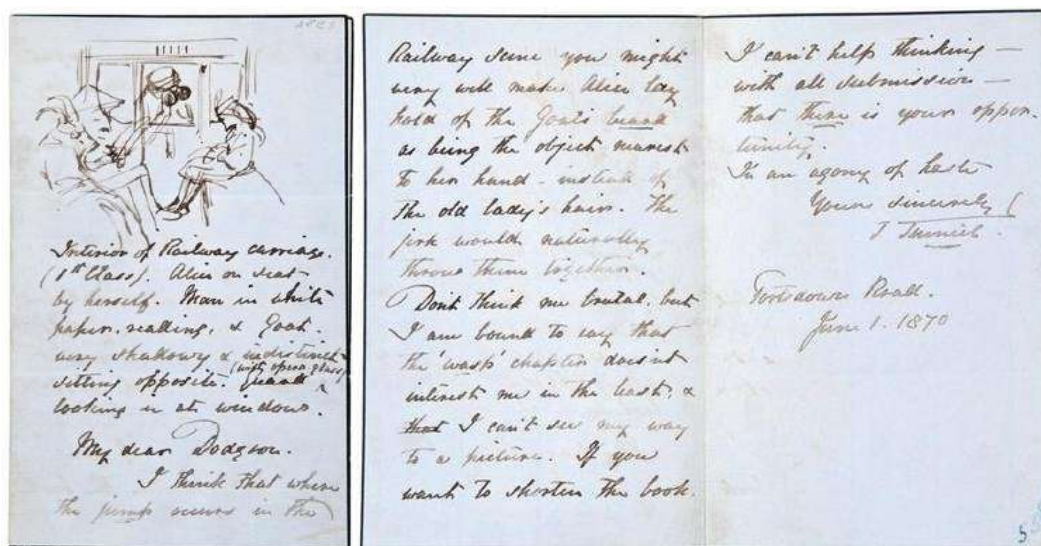 Interior of Railway carriage.
(1st Class). Alice on seat
by herself. Man in white
paper, reading, & Goat.
very shadowy & indistinct
sitting opposite. Guard (with opera glass)
looking in at window.
My dear Dodgson.
I think that when
the jump occurs in the
Railway scene you might
very well make Alice lay
hold of the Goat's beard
as being the object nearest
to her hand - instead of
the old lady's hair. The
jerk would naturally
throw them together.
Don't think me brutal, but
I am bound to say that
the 'wasp' chapter doesn't
interest me in the least, &
that I can't see my way
to a picture. If you
want to shorten the book,
I can't help thinking —
with all submission —
that there is your oppor-
tunity.
In an agony of haste
Yours sincerely
J Tenniel.
Portsdown Road.
June 1. 1870